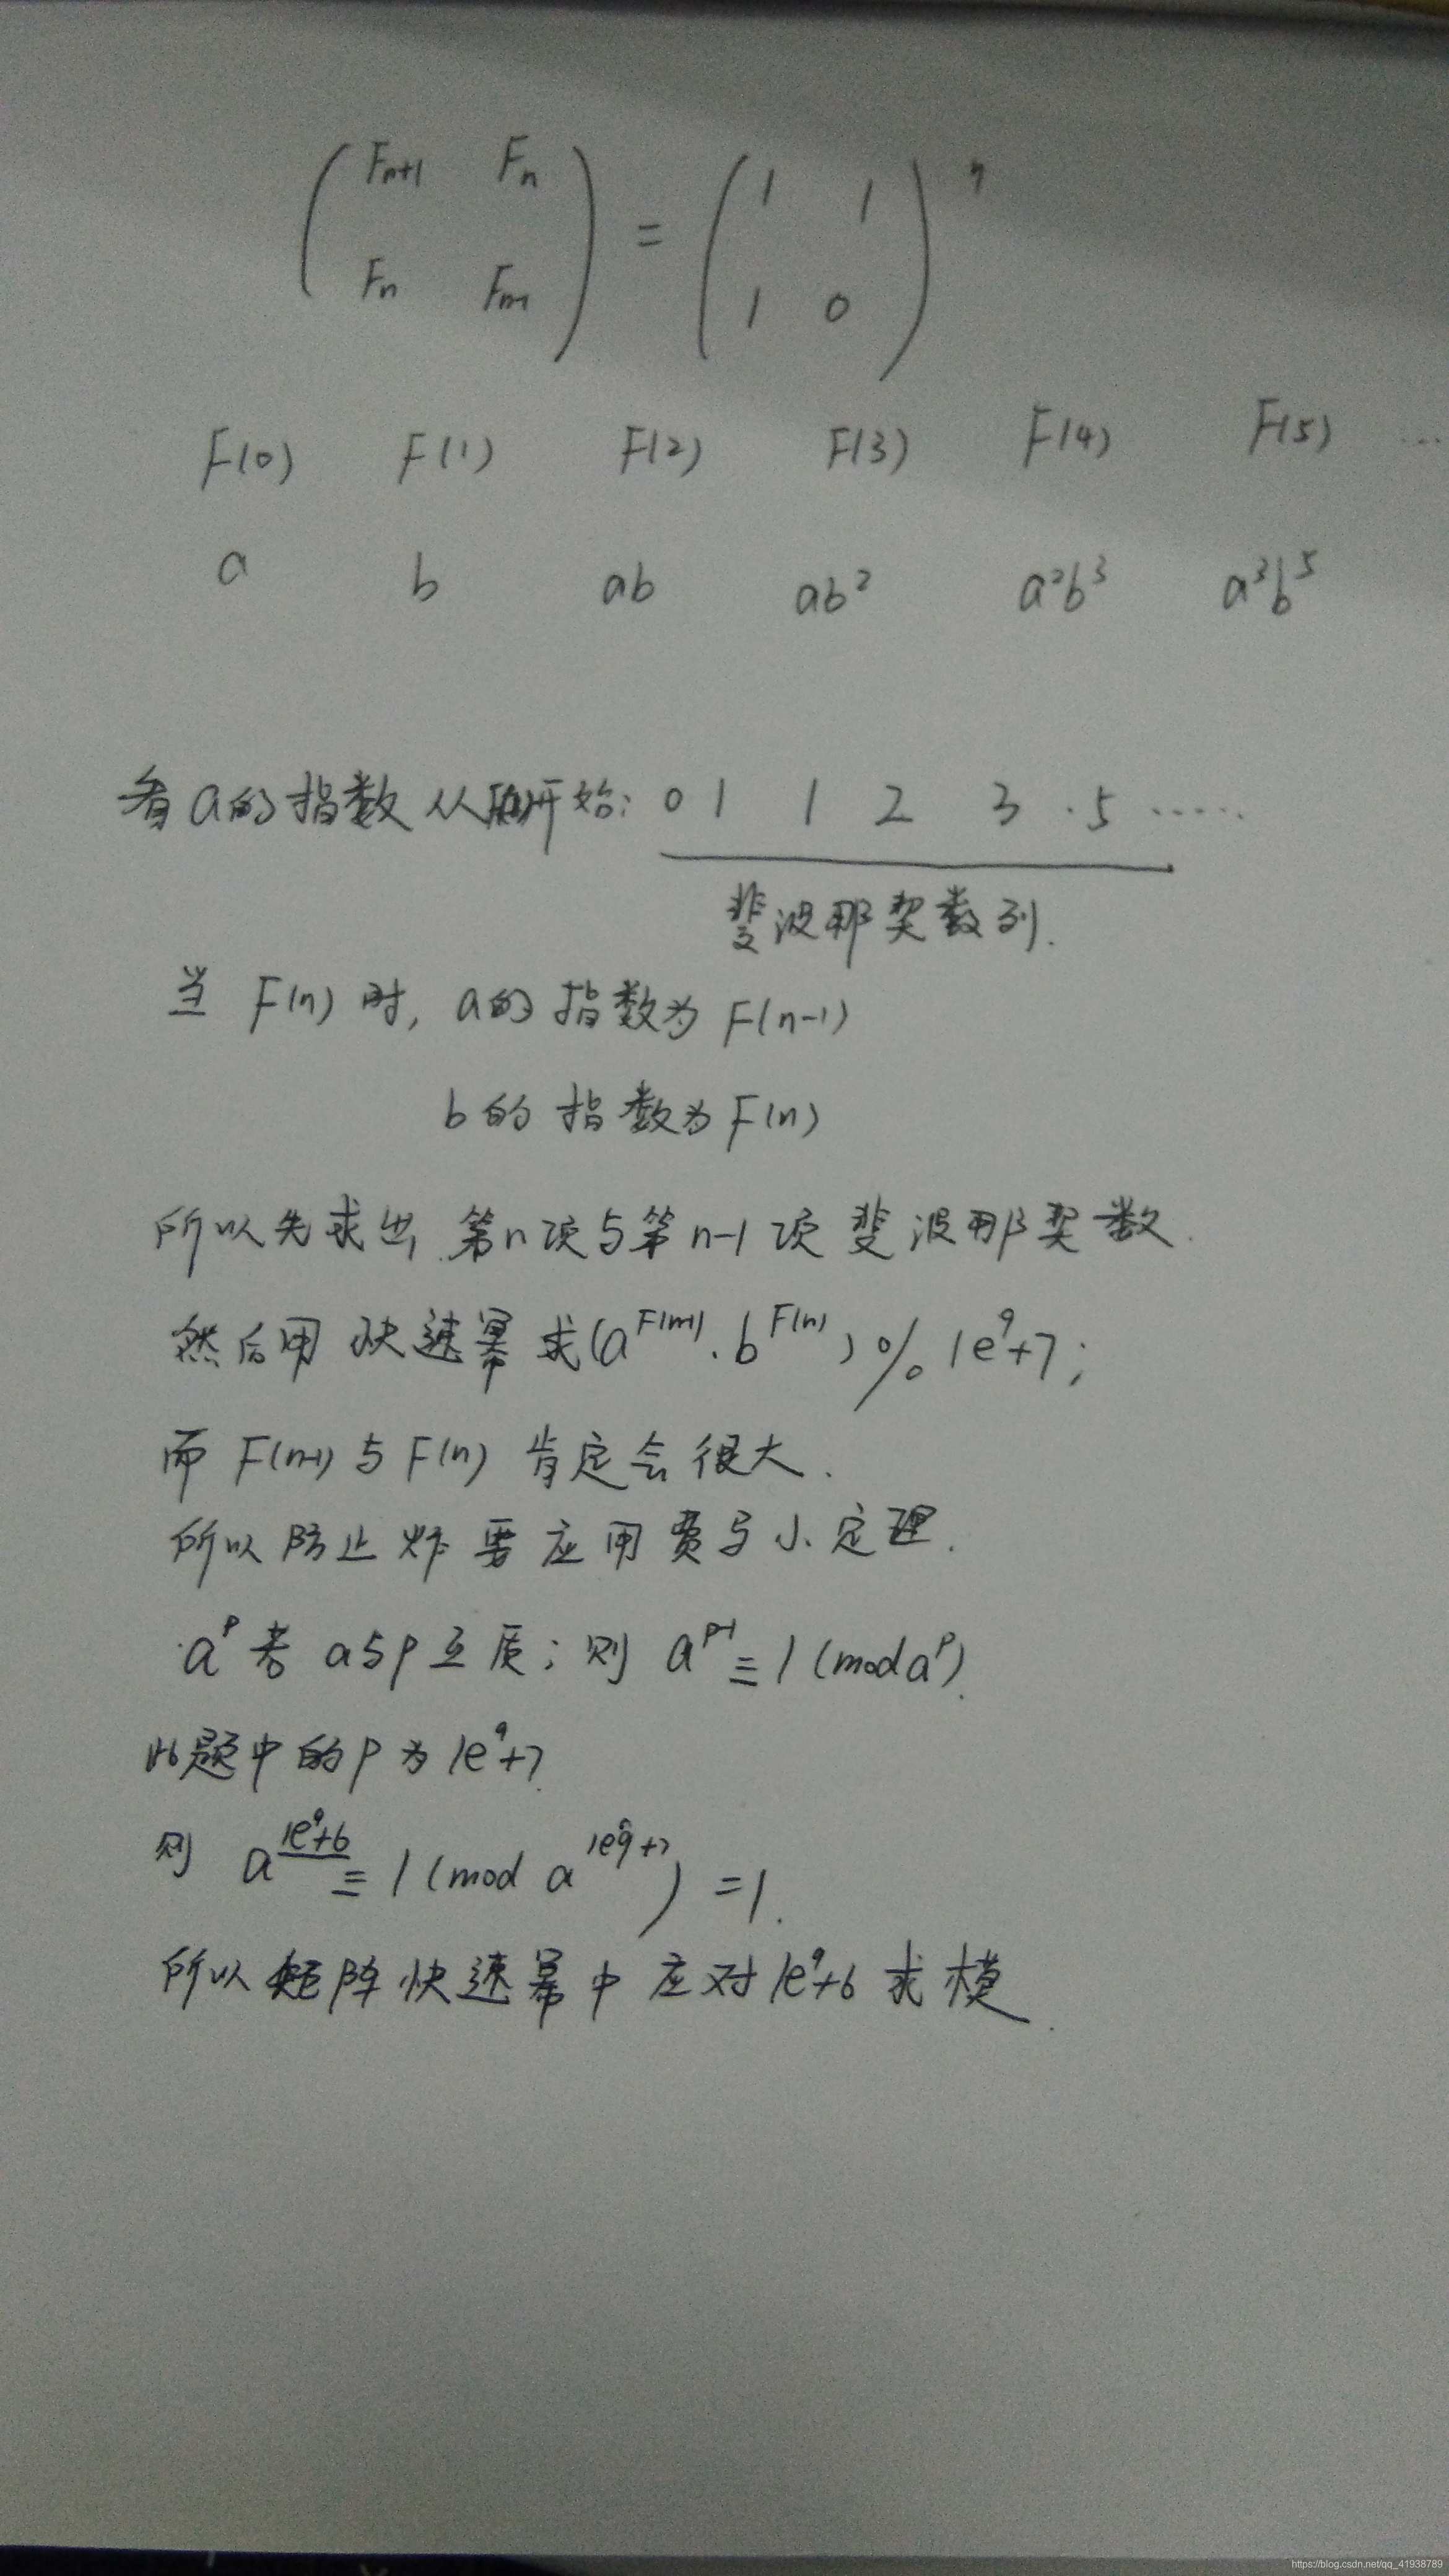 ( Fn+1 Fn ) = ( 1 1 ) n
( Fn Fn-1 ) ( 1 0 )
F(0) F(1) F(2) F(3) F(4) F(5) ...
a b ab ab² a²b³ a³b⁵
看a的指数从开始: 0 1 1 2 3 . 5 ......
斐波那契数列.
当 F(n) 时, a的指数为 F(n-1)
b的指数为F(n)
所以先求出第n项与第n-1项斐波那契数.
然后用快速幂求(a^F(n-1) · b^F(n)) % 1e⁹+7;
而 F(n-1)与F(n) 肯定会很大.
所以防止炸要应用费马小定理.
a^p 若 a与p互质; 则 a^p-1 ≡ 1 (mod a^p).
此题中的p为1e⁹+7.
则 a^1e⁹+6 ≡ 1 (mod a^1e⁹+7) = 1.
所以矩阵快速幂中应对1e⁹+6求模.
https://blog.csdn.net/qq_41938789